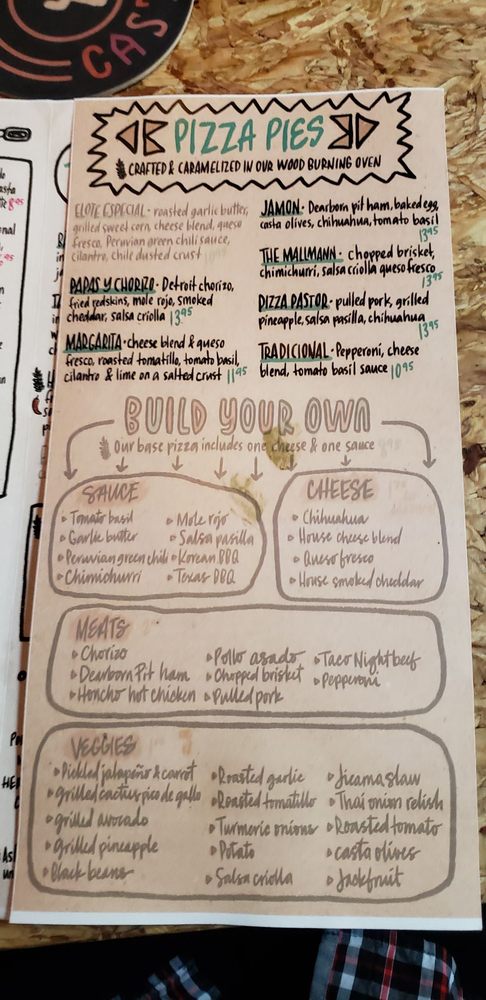 CAS
PIZZA PIES
CRAFTED & CARAMELIZED IN OUR WOOD BURNING OVEN
ELOTE ESPECIAL · roasted garlic butter,
grilled sweet corn, cheese blend, queso
fresco, Peruvian green chili sauce,
cilantro, chile dusted crust
PAPAS Y CHORIZO · Detroit chorizo,
fried redskins, mole rojo, smoked
cheddar, salsa criolla 13.95
MARGARITA · cheese blend & queso
fresco, roasted tomatillo, tomato basil,
cilantro & lime on a salted crust 11.95
JAMON · Dearborn pit ham, baked egg,
casta olives, chihuahua, tomato basil
13.95
THE MALLMANN · chopped brisket,
chimichurri, salsa criolla queso fresco
13.95
PIZZA PASTOR · pulled pork, grilled
pineapple, salsa pasilla, chihuahua
13.95
TRADICIONAL · Pepperoni, cheese
blend, tomato basil sauce 10.95
BUILD YOUR OWN
Our base pizza includes one cheese & one sauce
SAUCE
Tomato basil
Garlic butter
Peruvian green chili
Chimichurri
Mole rojo
Salsa pasilla
Korean BBQ
Texas BBQ
CHEESE
Chihuahua
House cheese blend
Queso fresco
House smoked cheddar
MEATS
Chorizo
Dearborn Pit ham
Honcho hot chicken
Pollo asado
Chopped brisket
Pulled pork
Taco Night beef
Pepperoni
VEGGIES
Pickled jalapeño & carrot
grilled cactus pico de gallo
grilled avocado
grilled pineapple
Black beans
Roasted garlic
Roasted tomatillo
Turmeric onions
Potato
Salsa criolla
Jicama slaw
Thai onion relish
Roasted tomato
casta olives
Jackfruit